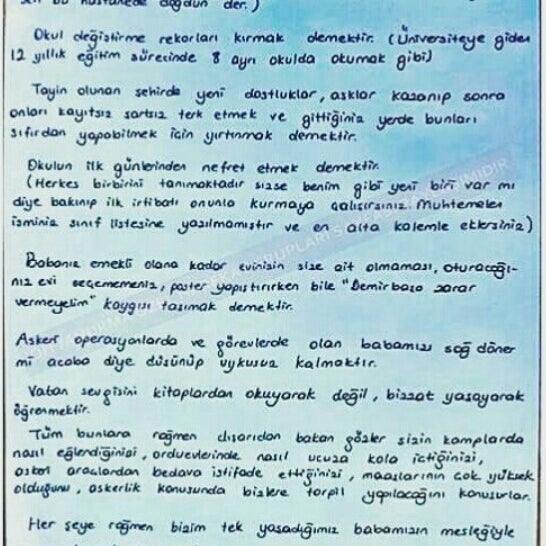 sen bu hastanede doğdun der.)
Okul değiştirme rekorları kırmak demektir. (Üniversiteye giden
12 yıllık eğitim sürecinde 8 ayrı okulda okumak gibi)
Tayin olunan şehirde yeni dostluklar, aşklar kazanıp sonra
onları kayıtsız şartsız terk etmek ve gittiğiniz yerde bunları
sıfırdan yapabilmek için yırtınmak demektir.
Okulun ilk günlerinden nefret etmek demektir.
(Herkes birbirini tanımaktadır sizse benim gibi yeni biri var mı
diye bakınıp ilk irtibatı onunla kurmaya çalışırsınız. Muhtemelen
isminiz sınıf listesine yazılmamıştır ve en alta kalemle eklersiniz)
Babanız emekli olana kadar evinizin size ait olmaması, oturacağı-
nız evi seçememeniz, poster yapıştırırken bile "Demirbaşa zarar
vermeyelim" kaygısı taşımak demektir.
Askeri operasyonlarda ve görevlerde olan babamızı sağ döner
mi acaba diye düşünüp uykusuz kalmaktır.
Vatan sevgisini kitaplardan okuyarak değil, bizzat yaşayarak
öğrenmektir.
Tüm bunlara rağmen dışarıdan bakan gözler sizin kamplarda
nasıl eğlendiğinizi, orduevlerinde nasıl ucuza kola içtiğinizi,
askeri araçlardan bedava istifade ettiğinizi, maaşlarının çok yüksek
olduğunu, askerlik konusunda bizlere torpil yapılacağını konuşurlar.
Her şeye rağmen bizim tek yaşadığımız babamızın mesleğiyle